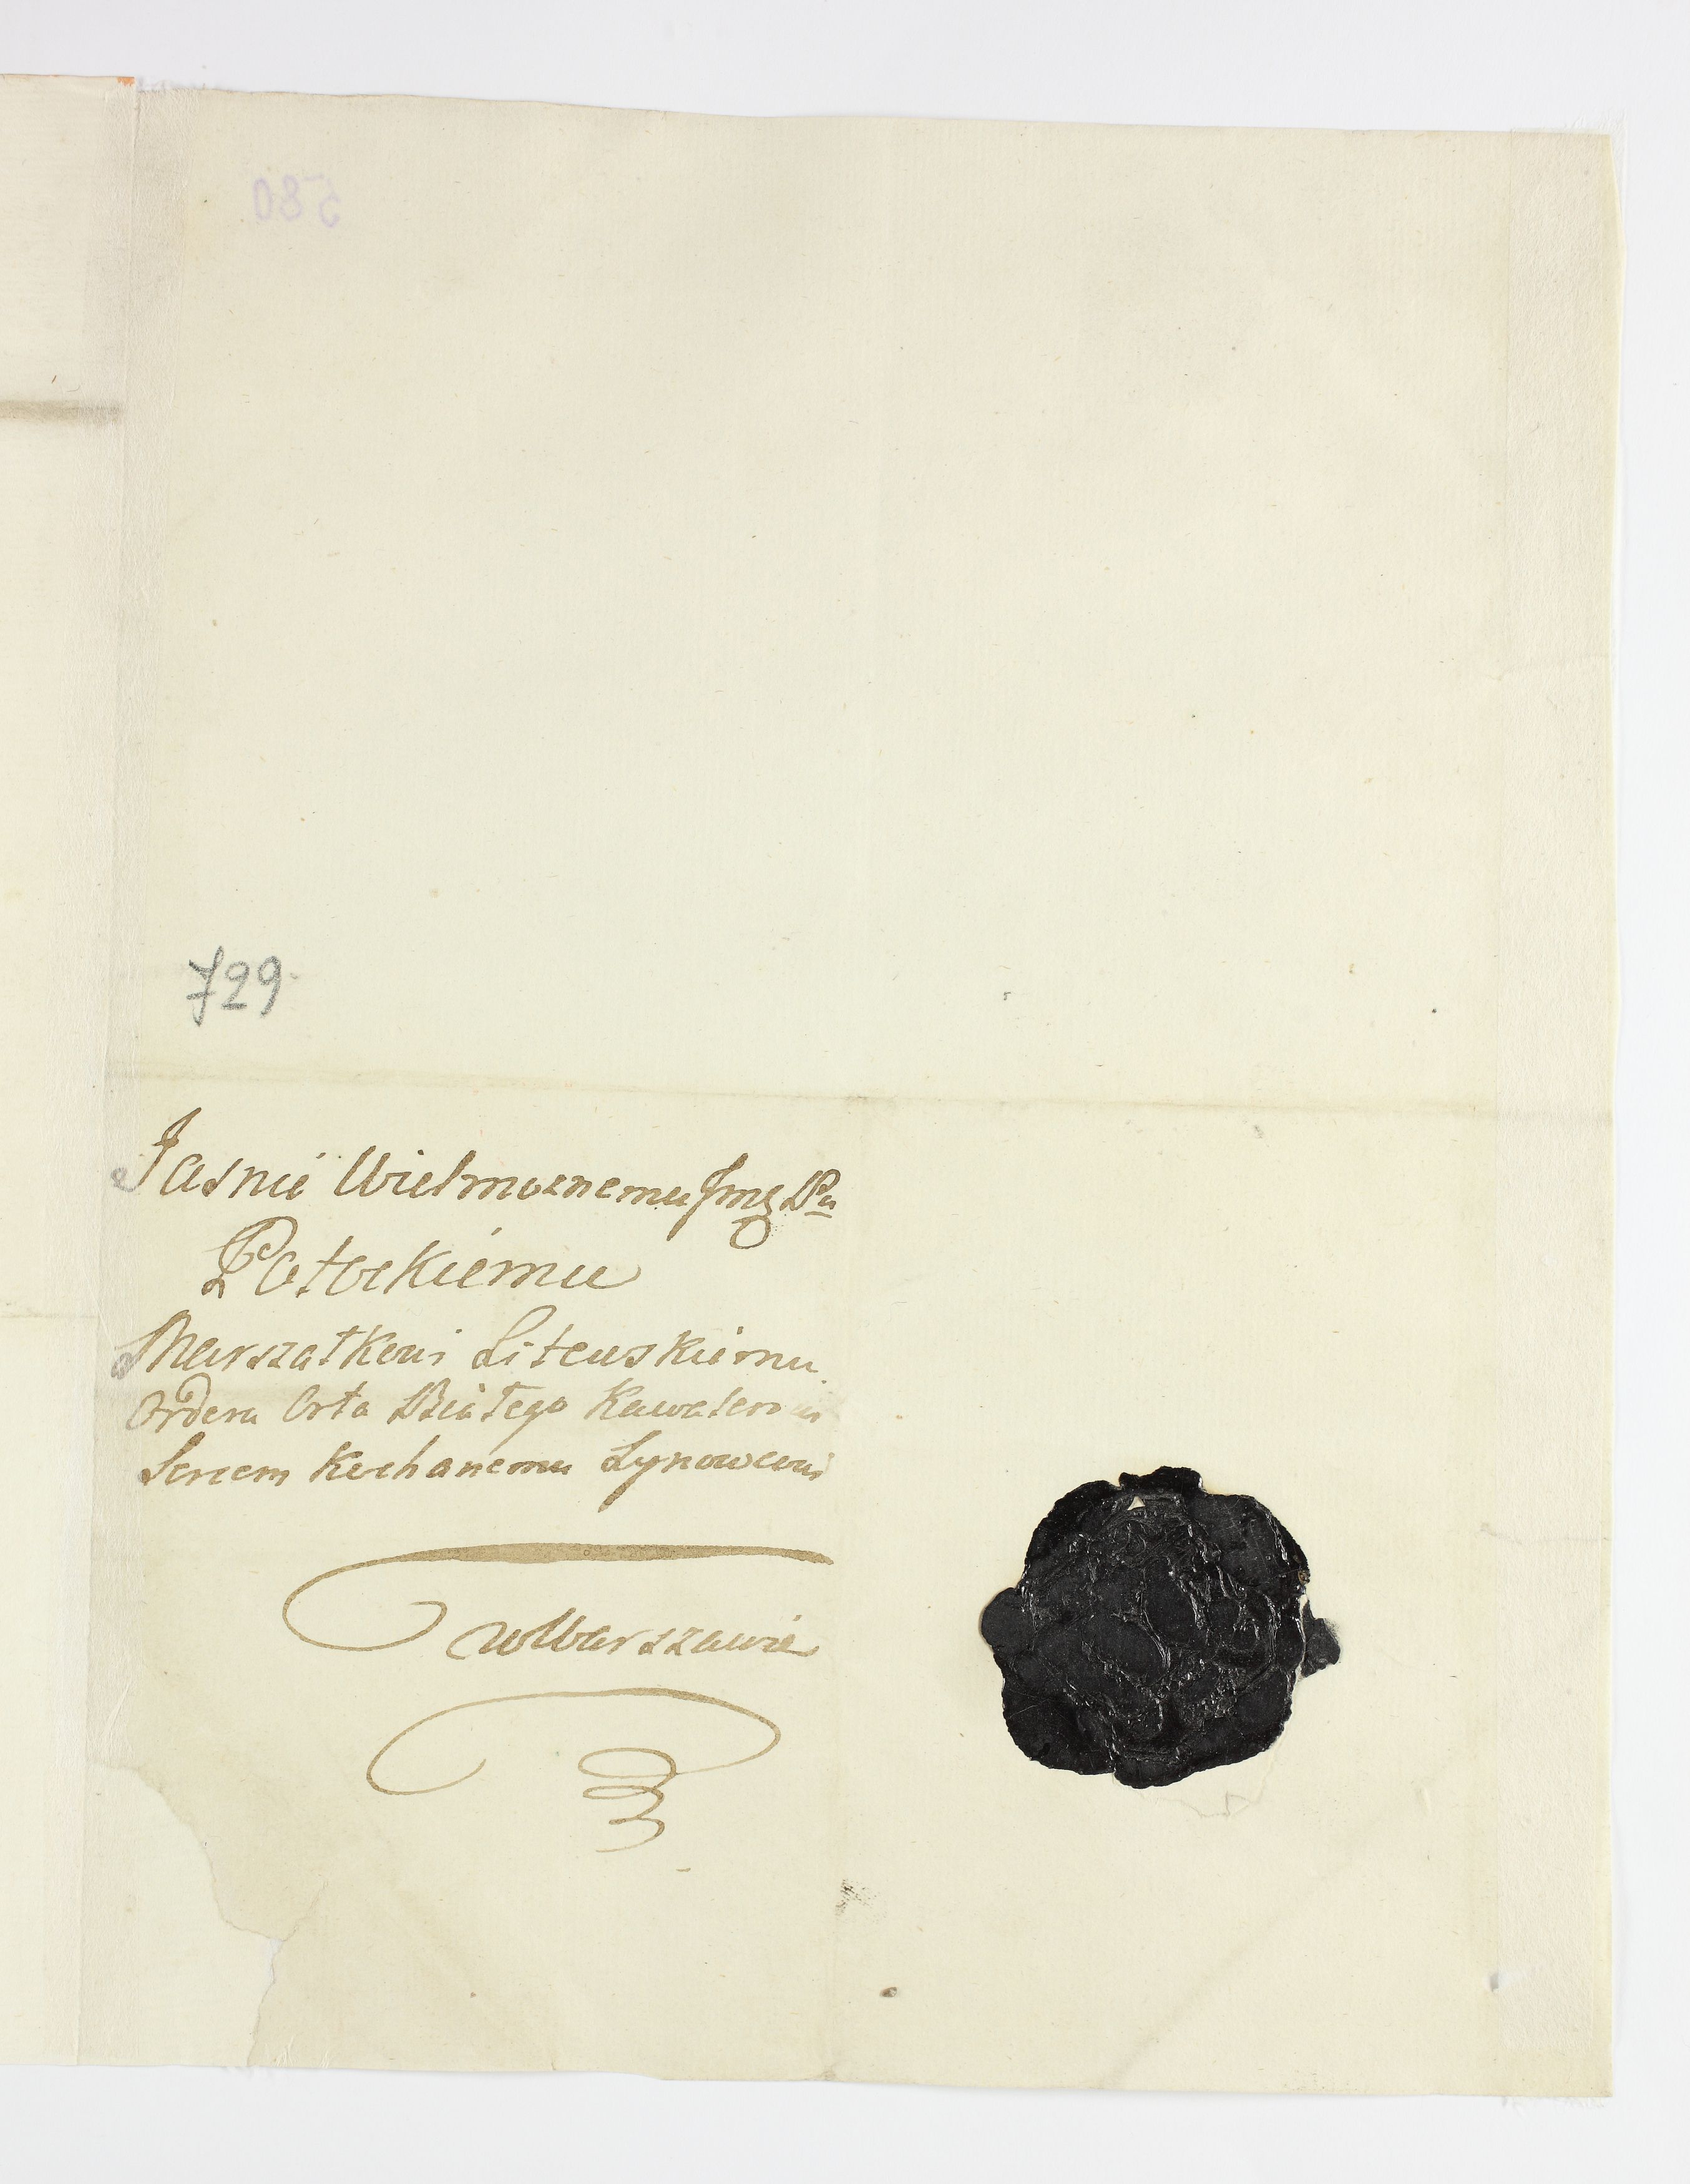 580
729.
Jasnie Wielmoznemu Jmg Pu
Potockiemu
Marszałkowi Litewskiemu
Orderu Orła Białego Kawalerowi
Sercem Kochanemu Synowcowi
w Warszawie